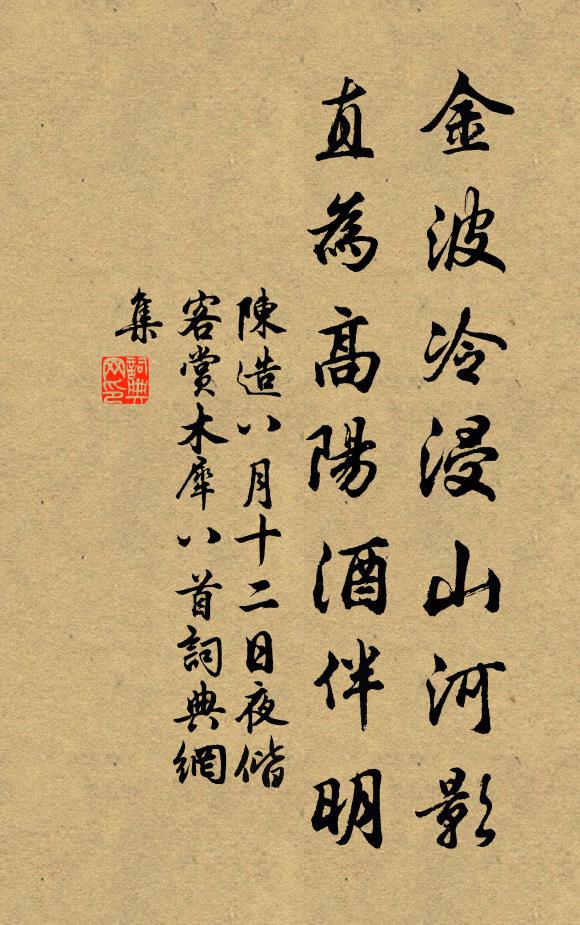 金波冷浸山河影
直為高陽酒伴明
陳造八月十二日夜偕
客賞木犀八首詞典網
集
詞典網印